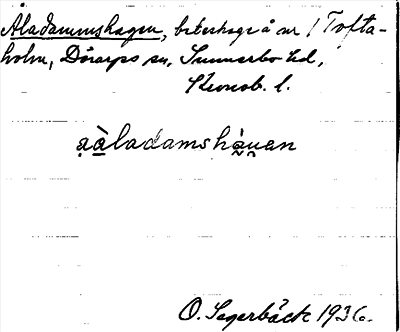 Åladammshagen, beteshage å nr 1 Tofta-
holm, Dörarps sn, Sunnerbo hd,
Kronob. l.
a̤àladamshàu̯an
O. Segerbäck 1936.